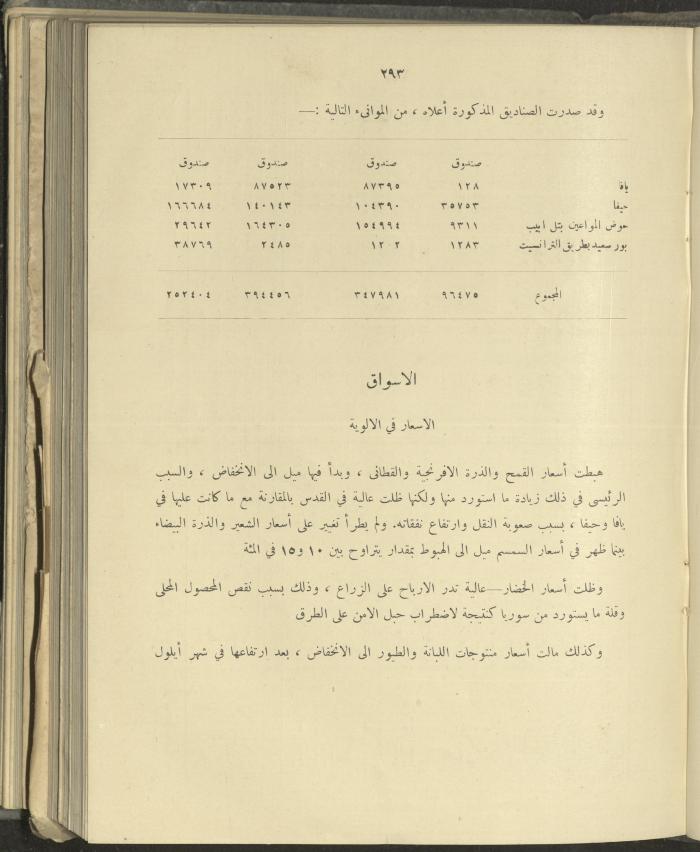 ٢٩٣
وقد صدرت الصناديق المذكورة أعلاه ، من الموانىء التالية :—
صندوق صندوق صندوق صندوق
يافا ١٢٨ ٨٧٣٩٥ ٨٧٥٢٣ ١٧٣٠٩
حيفا ٣٥٧٥٣ ١٠٤٣٩٠ ١٤٠١٤٣ ١٦٦٦٨٤
حوض المواعين بتل ابيب ٩٣١١ ١٥٤٩٩٤ ١٦٤٣٠٥ ٢٩٦٤٢
بور سعيد بطريق الترانسيت ١٢٨٣ ١٢٠٢ ٢٤٨٥ ٣٨٧٦٩
المجموع ٩٦٤٧٥ ٣٤٧٩٨١ ٣٩٤٤٥٦ ٢٥٢٤٠٤
الاسواق
الاسعار في الالوية
هبطت أسعار القمح والذرة الافرنجية والقطانى ، وبدأ فيها ميل الى الانخفاض ، والسبب
الرئيسى في ذلك زيادة ما استورد منها ولكنها ظلت عالية في القدس بالمقارنة مع ما كانت عليها في
يافا وحيفا ، بسبب صعوبة النقل وارتفاع نفقاته. ولم يطرأ تغيير على أسعار الشعير والذرة البيضاء
بينما ظهر في أسعار السمسم ميل الى الهبوط بمقدار يتراوح بين ١٠ و١٥ في المئة
وظلت أسعار الخضار—عالية تدر الارباح على الزراع ، وذلك بسبب نقص المحصول المحلى
وقلة ما يستورد من سوريا كنتيجة لاضطراب حبل الامن على الطرق
وكذلك مالت أسعار منتوجات اللبانة والطيور الى الانخفاض ، بعد ارتفاعها في شهر أيلول